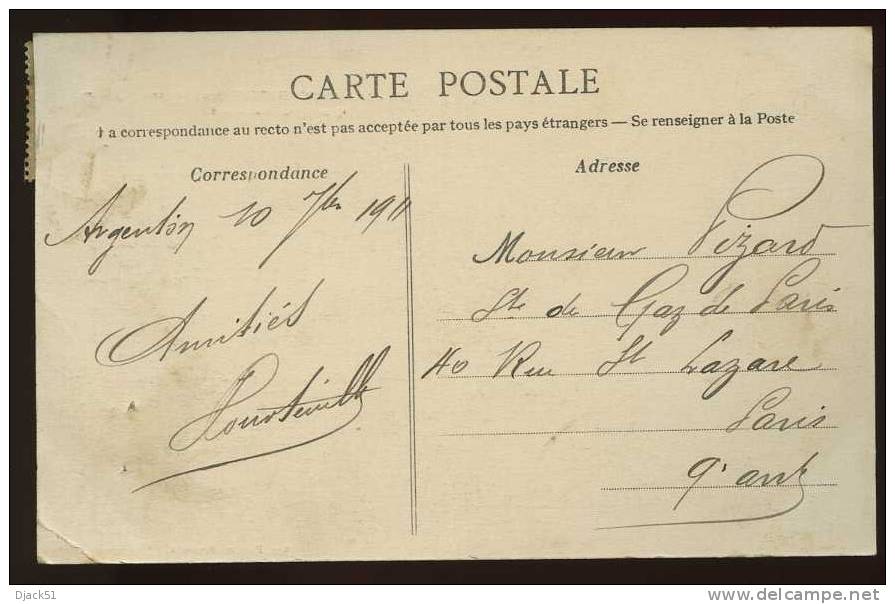 CARTE POSTALE
La correspondance au recto n'est pas acceptée par tous les pays étrangers — Se renseigner à la Poste
Correspondance
Argentan 10 7bre 1911
Amitiés
Adresse
Monsieur Pizard
Sté de Gaz de Paris
40 Rue St Lazare
Paris
9e arrt
Djack51
www.delcampe.net